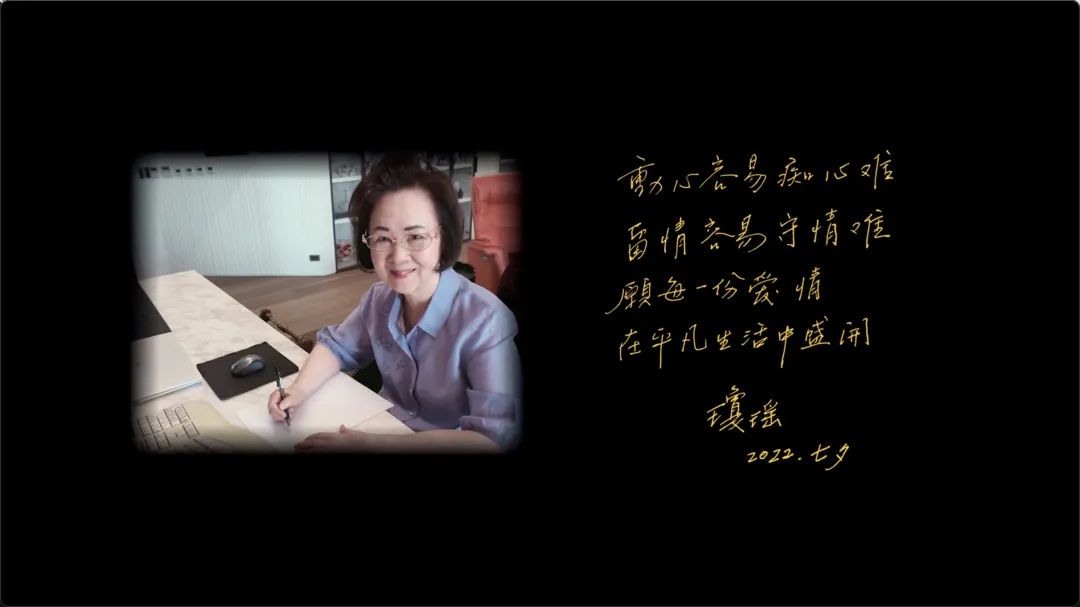 動心容易痴心难
留情容易守情难
願每一份爱情
在平凡生活中盛開
瓊瑶
2022.七夕